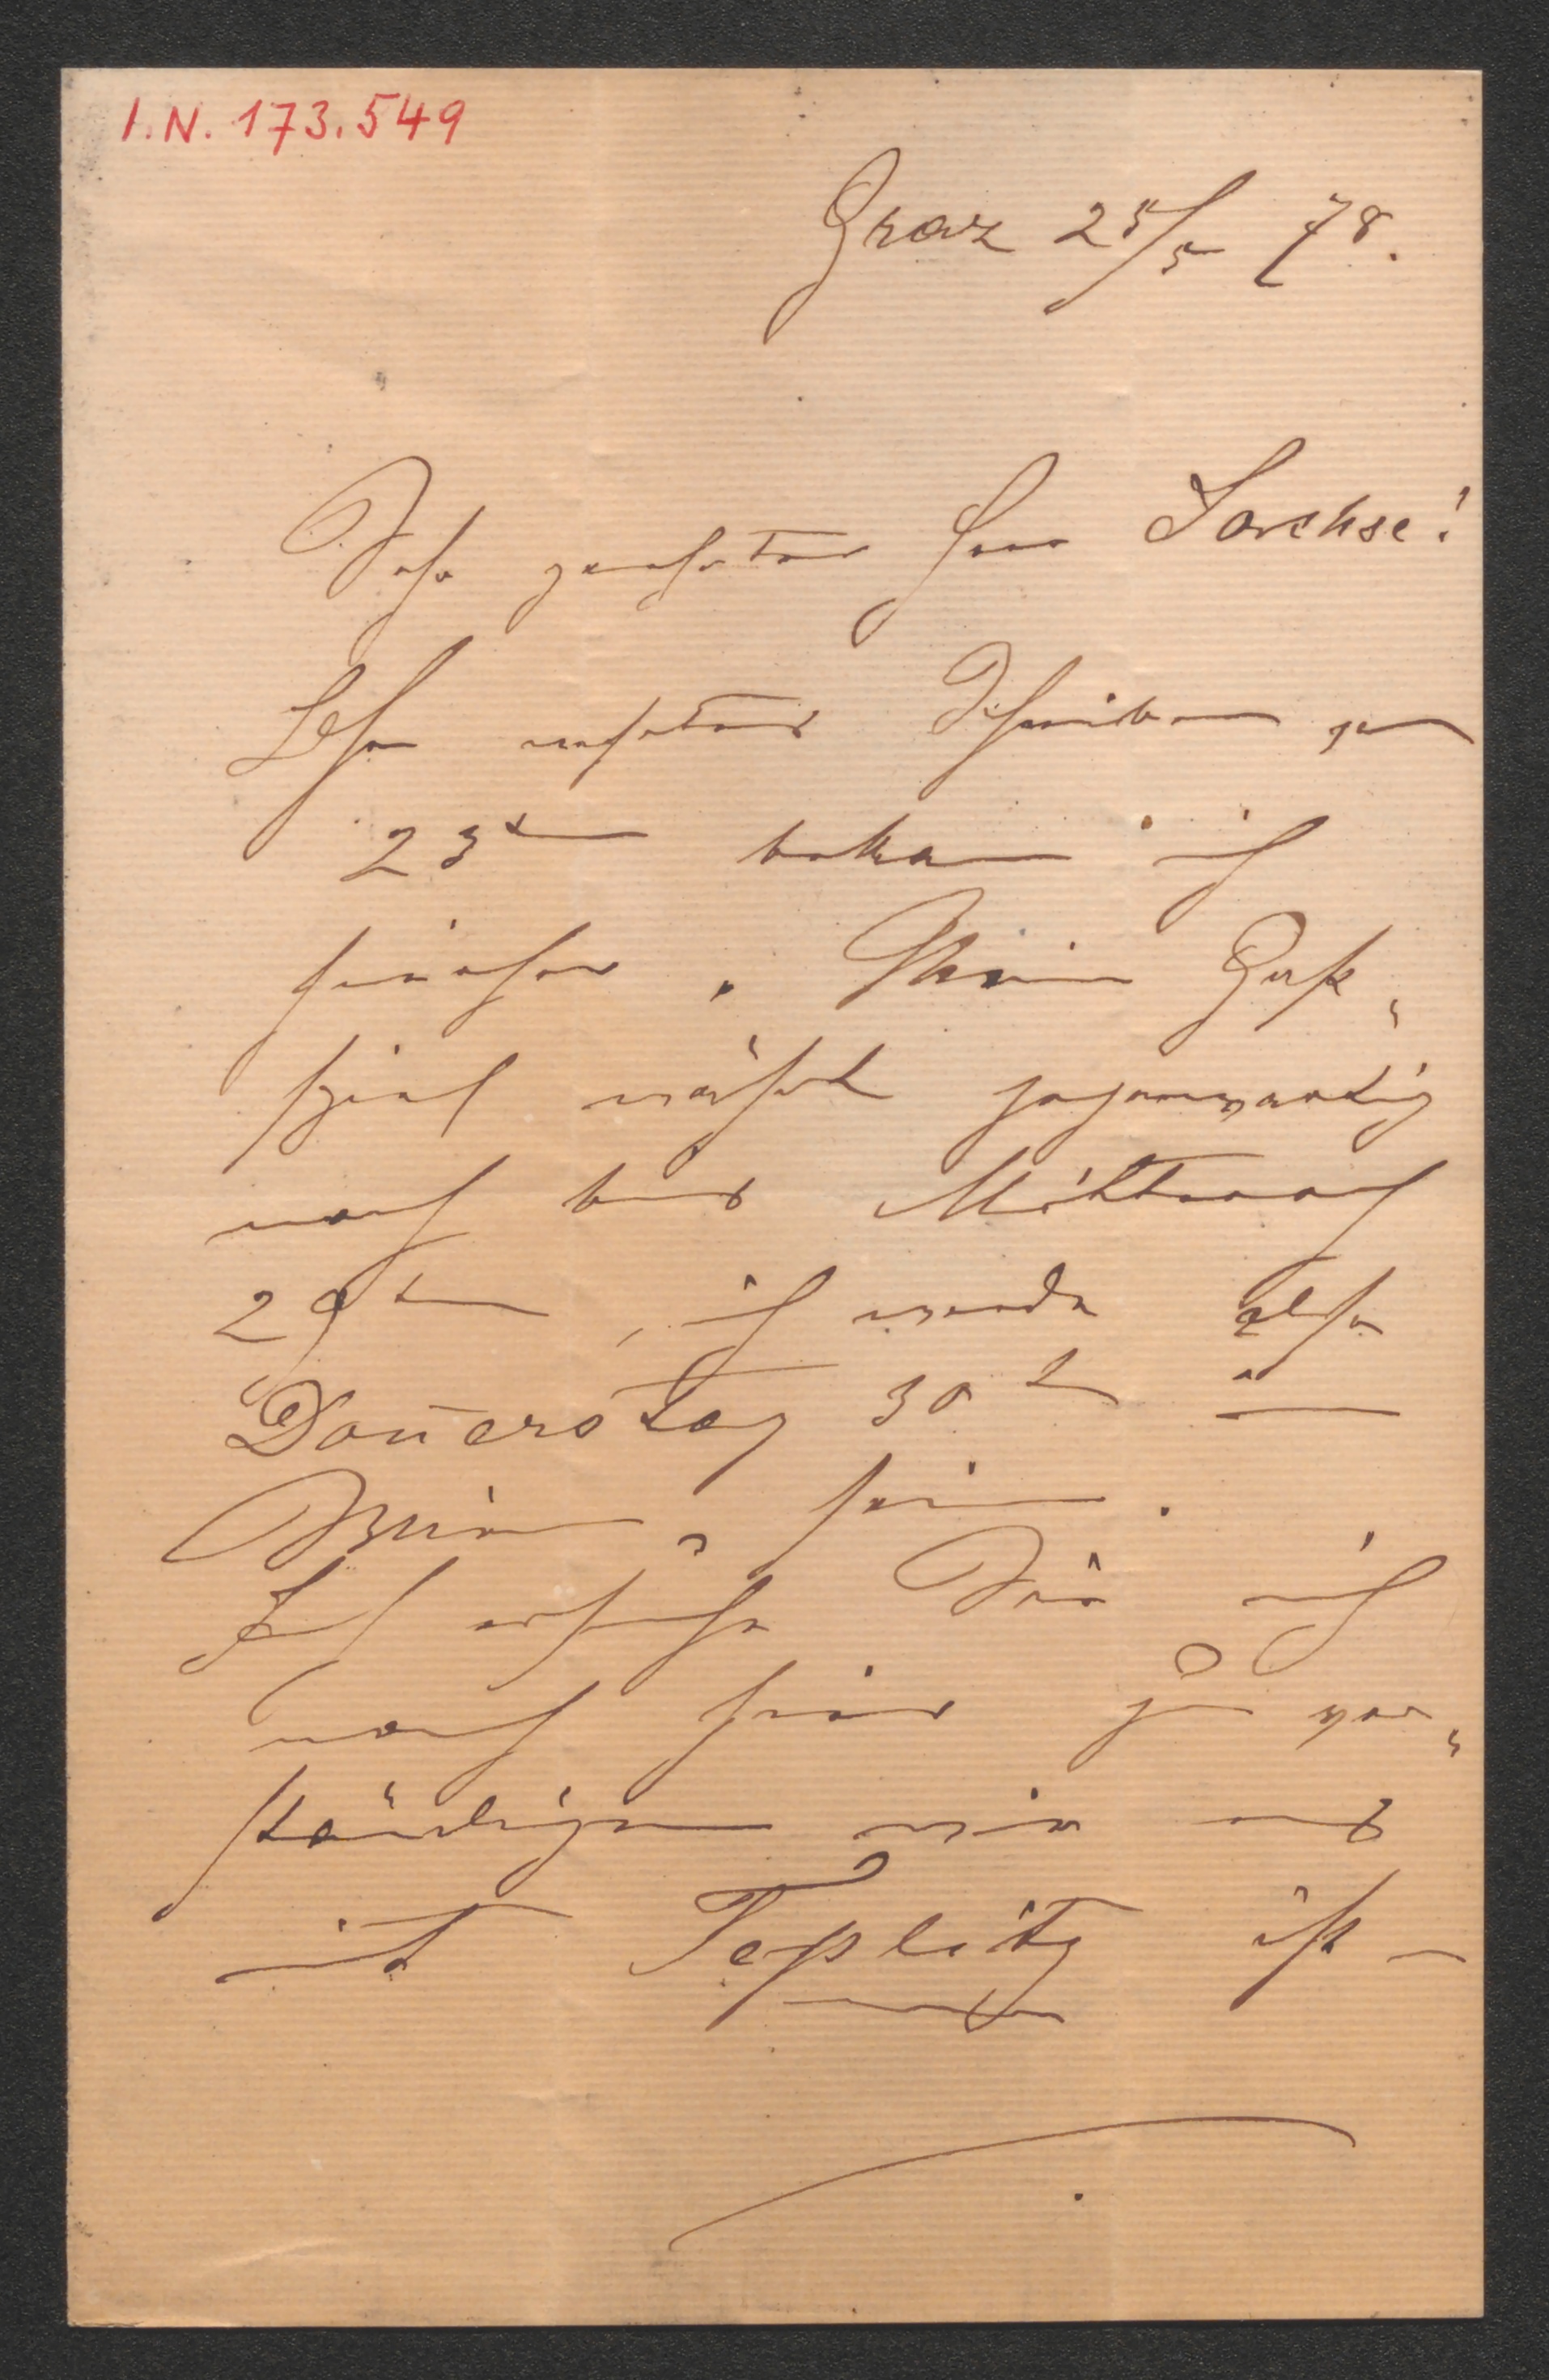 I.N. 173.549
Graz 25/5 78.
Sehr geehrter Herr Sachse!
Ihr wehrtes Schreiben vom
23ten bekam ich
hierher. Mein Gast„
spiel währt gegenwärtig
noch bis Mittwoch
29ten, ich werde also
Don̄erstag 30t in
Wien sein.
Ich ersuche Sie mich
noch hier zu ver„
ständigen wie es
mit Teplitz ist –